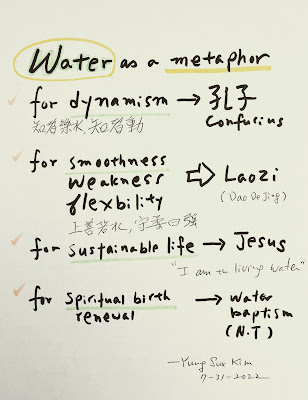 Water as a metaphor
for dynamism → 孔子
Confucius
知者樂水, 知者動
for smoothness
weakness
flexbility
⇨ Laozi
(Dao De Jing)
上善若水, 守柔曰强
for sustainable life → Jesus
"I am the living water"
for spiritual birth → water
renewal baptism
(N.T)
— Yung Suk Kim
7-31-2022